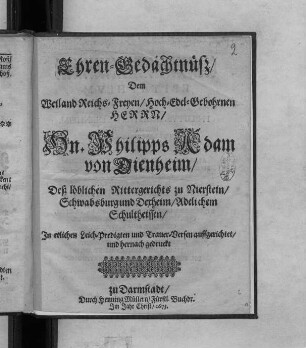 2
Ehren-Gedächtnüß/
Dem
Weiland Reichs-Freyen/ Hoch-Edel-Gebohrnen
HERRN/
Hn. Philipps Adam
von Dienheim/
Deß löblichen Rittergerichts zu Nierstein/
Schwabsburg und Dexheim/ Adelichem
Schultheissen/
In etlichen Leich-Predigten und Trauer-Versen auffgerichtet/
und hernach gedruckt
zu Darmstadt/
Durch Henning Müllern/ Fürstl. Buchdr.
Im Jahr Christi/